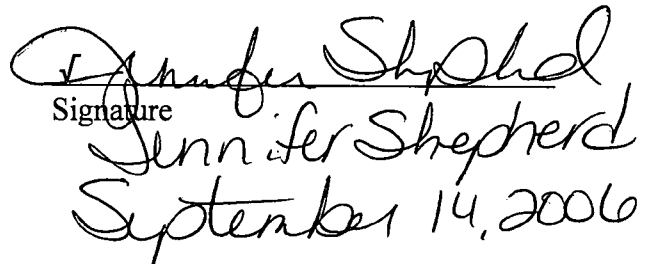 Jennifer Shepherd
Signature
Jennifer Shepherd
September 14, 2006